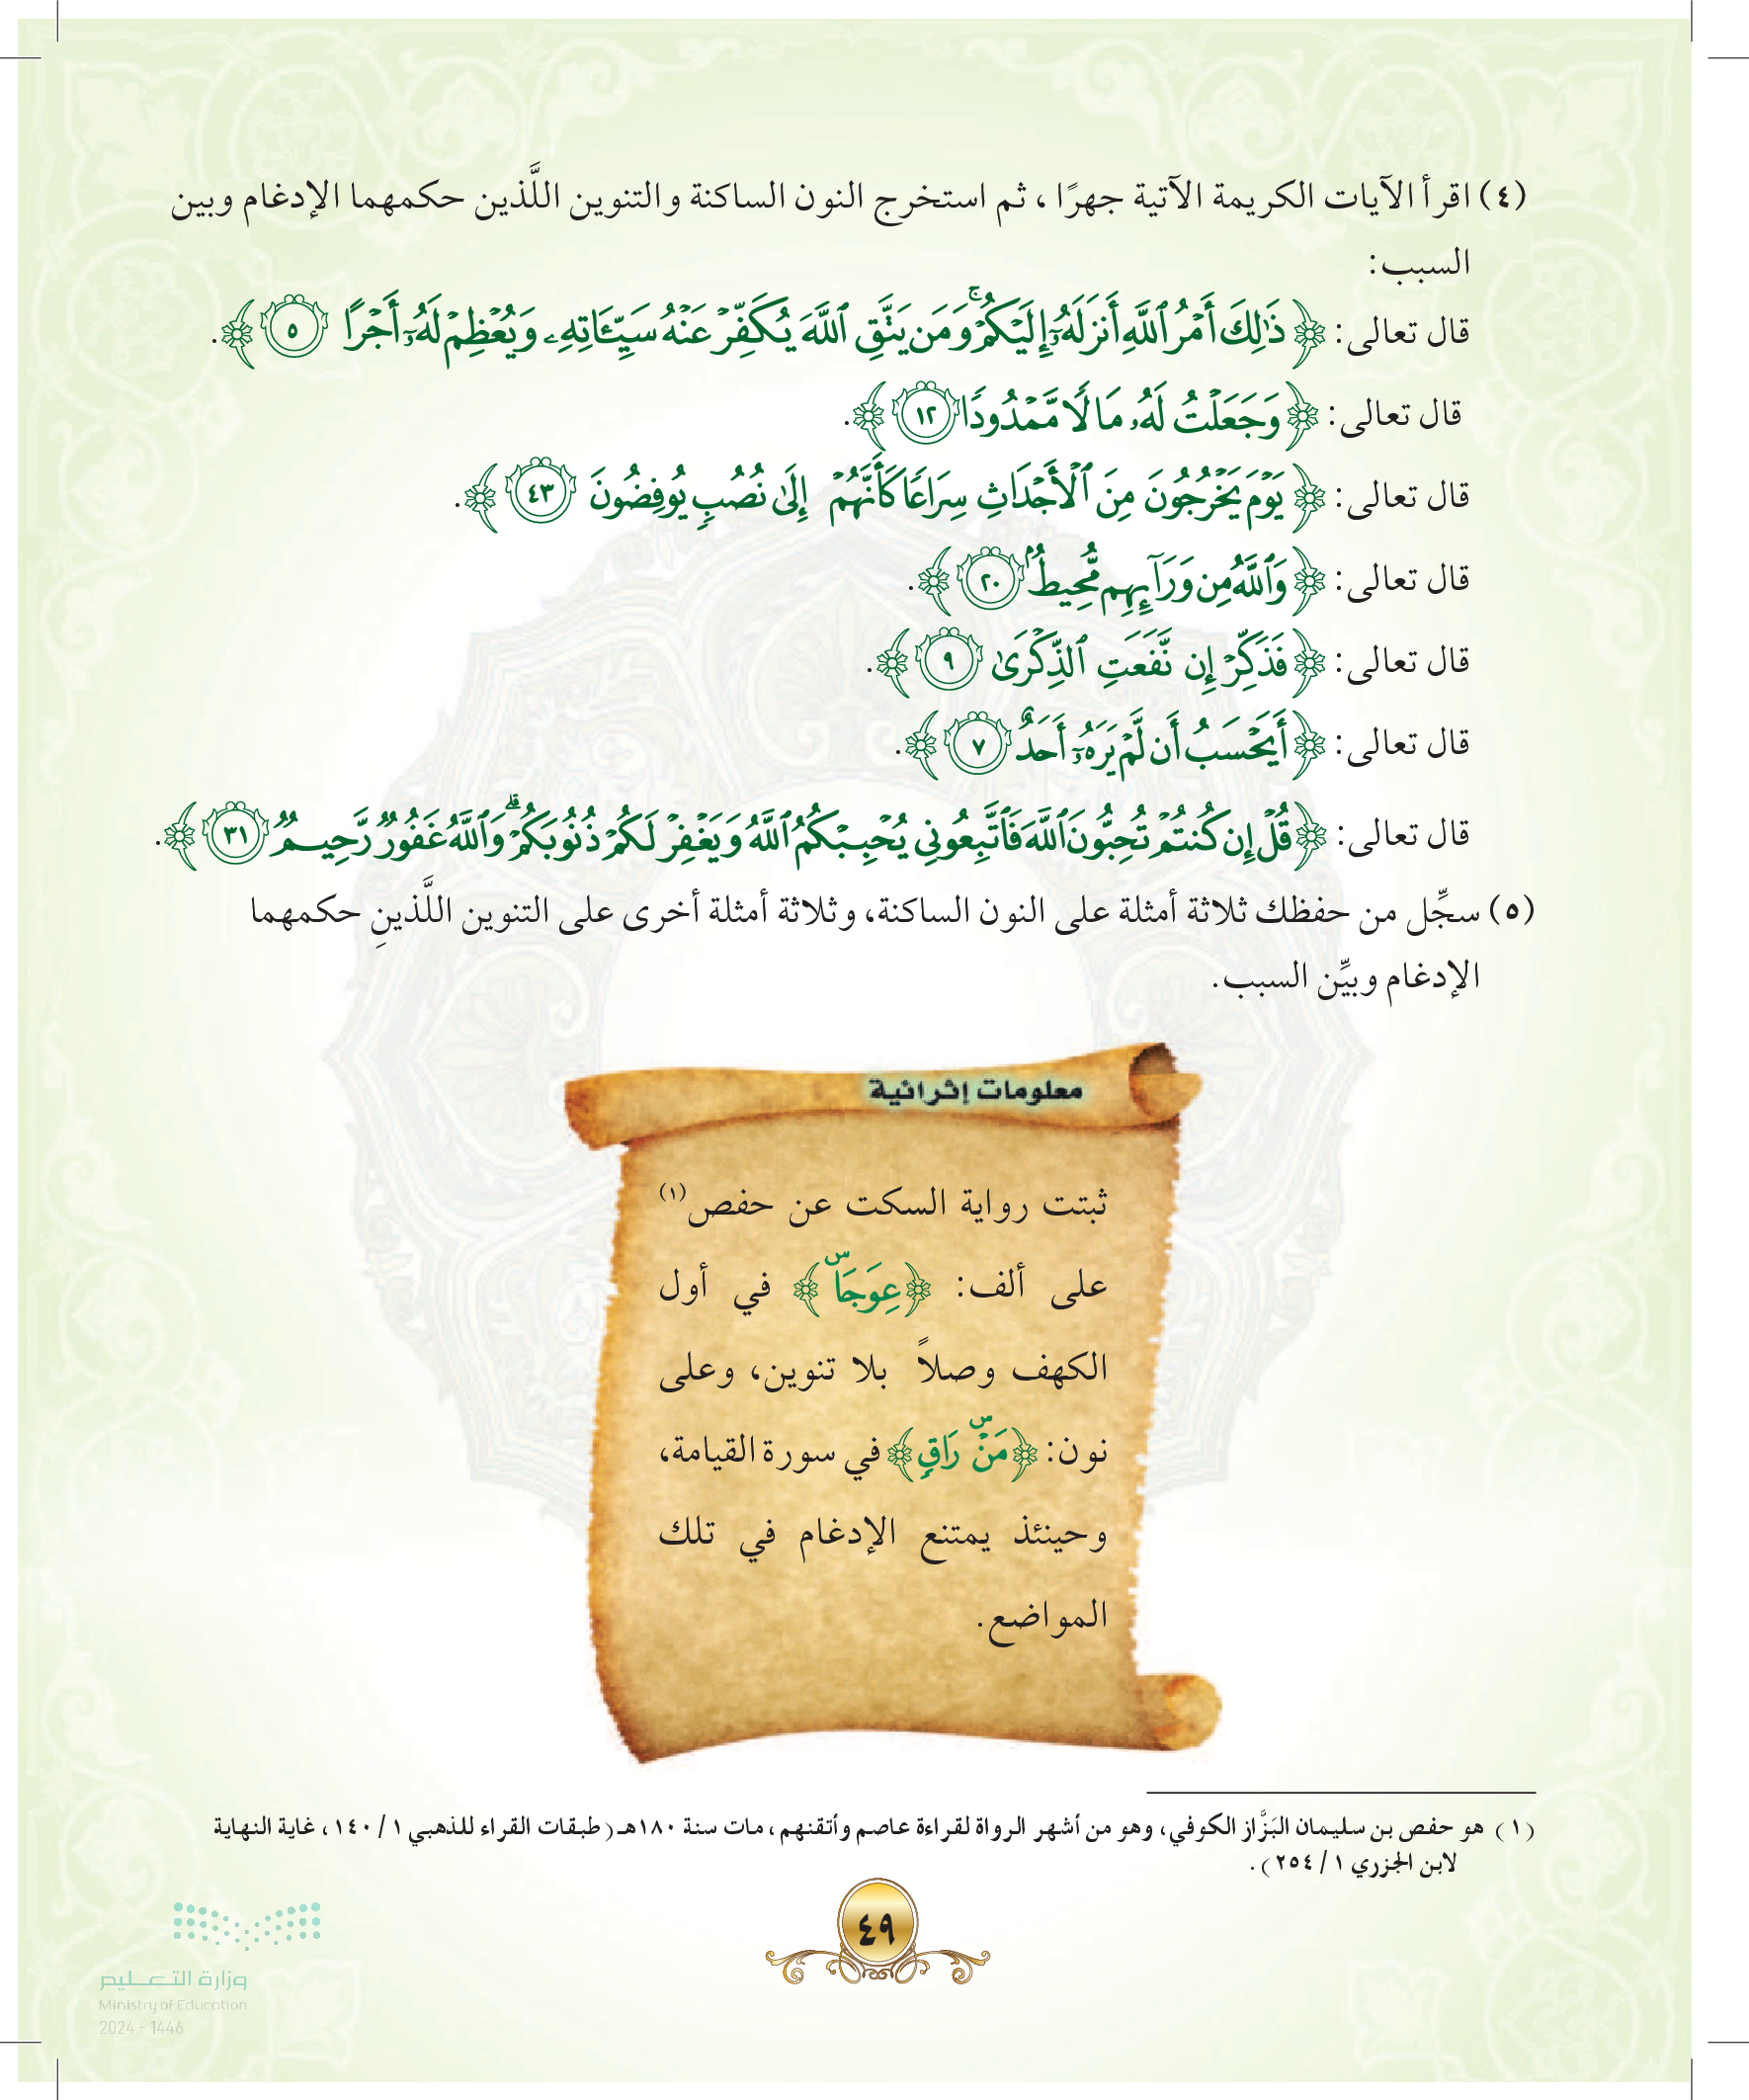 (٤) اقرأ الآيات الكريمة الآتية جهرًا ، ثم استخرج النون الساكنة والتنوين اللَّذين حكمهما الإدغام وبين
السبب:
قال تعالى: ﴿ ذَٰلِكَ أَمۡرُ ٱللَّهِ أَنزَلَهُۥٓ إِلَيۡكُمۡۚ وَمَن يَتَّقِ ٱللَّهَ يُكَفِّرۡ عَنۡهُ سَيِّـَٔاتِهِۦ وَيُعۡظِمۡ لَهُۥٓ أَجۡرًا ٥ ﴾.
قال تعالى: ﴿ وَجَعَلۡتُ لَهُۥ مَالٗا مَّمۡدُودٗا ١٢ ﴾.
قال تعالى: ﴿ يَوۡمَ يَخۡرُجُونَ مِنَ ٱلۡأَجۡدَاثِ سِرَاعٗا كَأَنَّهُمۡ إِلَىٰ نُصُبٖ يُوفِضُونَ ٤٣ ﴾.
قال تعالى: ﴿ وَٱللَّهُ مِن وَرَآئِهِم مُّحِيطُۢ ٢٠ ﴾.
قال تعالى: ﴿ فَذَكِّرۡ إِن نَّفَعَتِ ٱلذِّكۡرَىٰ ٩ ﴾.
قال تعالى: ﴿ أَيَحۡسَبُ أَن لَّمۡ يَرَهُۥٓ أَحَدٌ ٧ ﴾.
قال تعالى: ﴿ قُلۡ إِن كُنتُمۡ تُحِبُّونَ ٱللَّهَ فَٱتَّبِعُونِي يُحۡبِبۡكُمُ ٱللَّهُ وَيَغۡفِرۡ لَكُمۡ ذُنُوبَكُمۡۗ وَٱللَّهُ غَفُورٞ رَّحِيمٞ ٣١ ﴾.
(٥) سجِّل من حفظك ثلاثة أمثلة على النون الساكنة، وثلاثة أمثلة أخرى على التنوين اللَّذينِ حكمهما
الإدغام وبيِّن السبب.
معلومات إثرائية
ثبتت رواية السكت عن حفص(١)
على ألف: ﴿ عِوَجَاۜ ﴾ في أول
الكهف وصلاً بلا تنوين، وعلى
نون: ﴿ مَنۡۜ رَاقٖ ﴾ في سورة القيامة،
وحينئذ يمتنع الإدغام في تلك
المواضع.
(١) هو حفص بن سليمان البَزَّاز الكوفي، وهو من أشهر الرواة لقراءة عاصم وأتقنهم، مات سنة ١٨٠هـ (طبقات القراء للذهبي ١ / ١٤٠، غاية النهاية
لابن الجزري ١ / ٢٥٤).
٤٩
وزارة التعليم
Ministry of Education
2024 - 1446